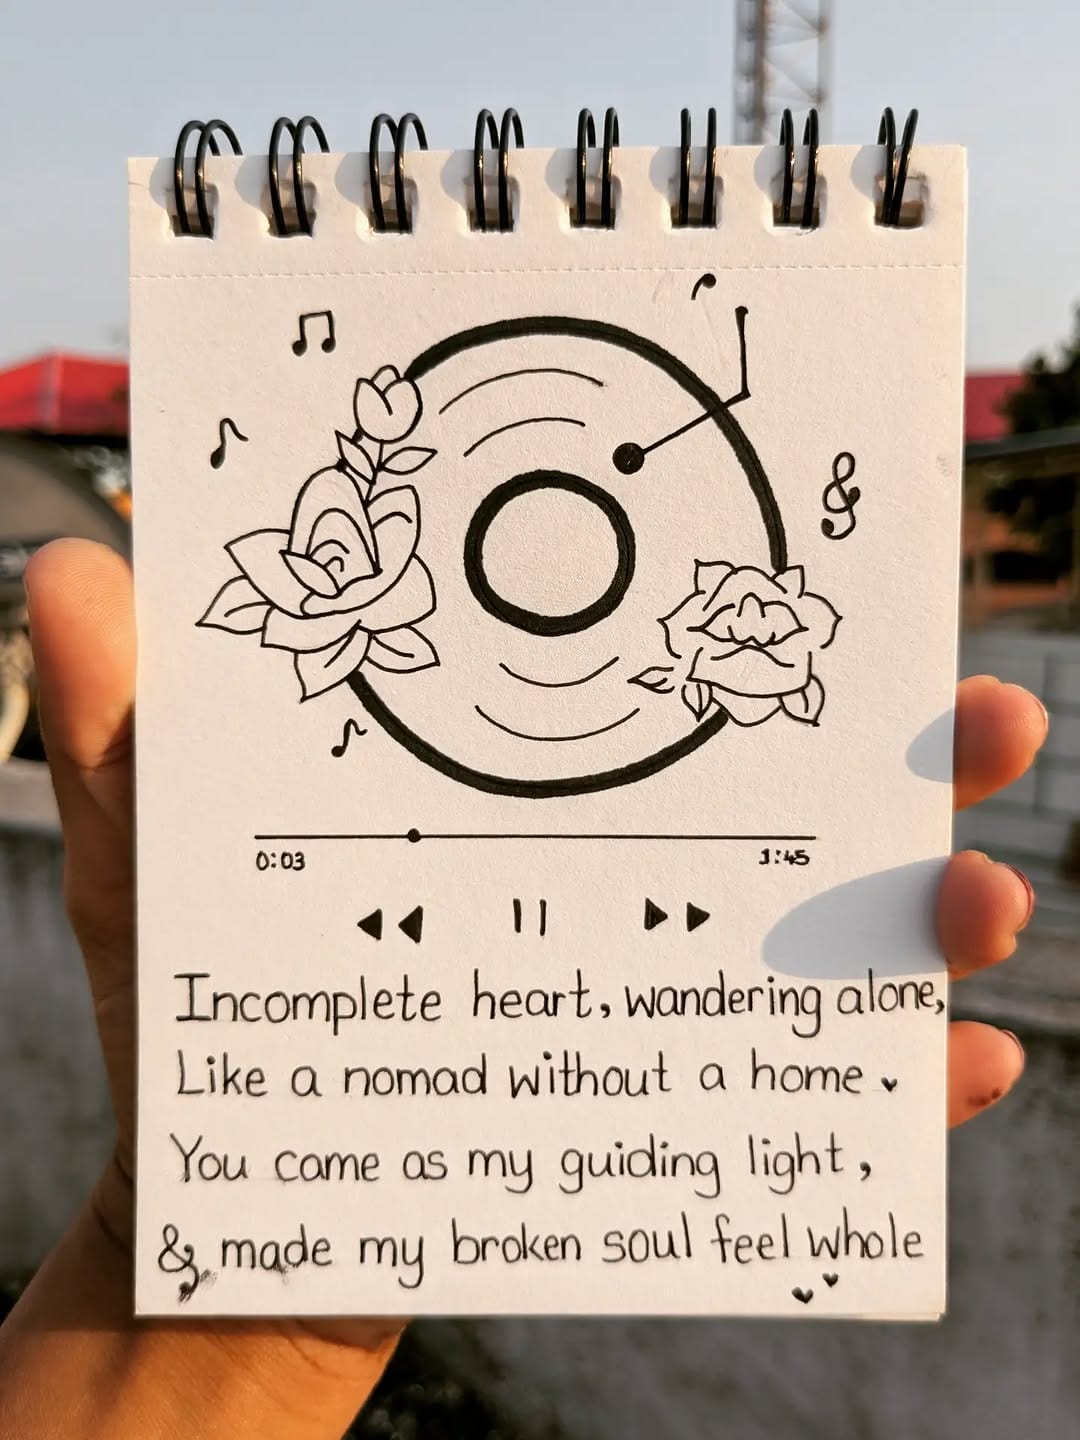 0:03 1:45
Incomplete heart, wandering alone,
Like a nomad without a home
You came as my guiding light,
& made my broken soul feel whole